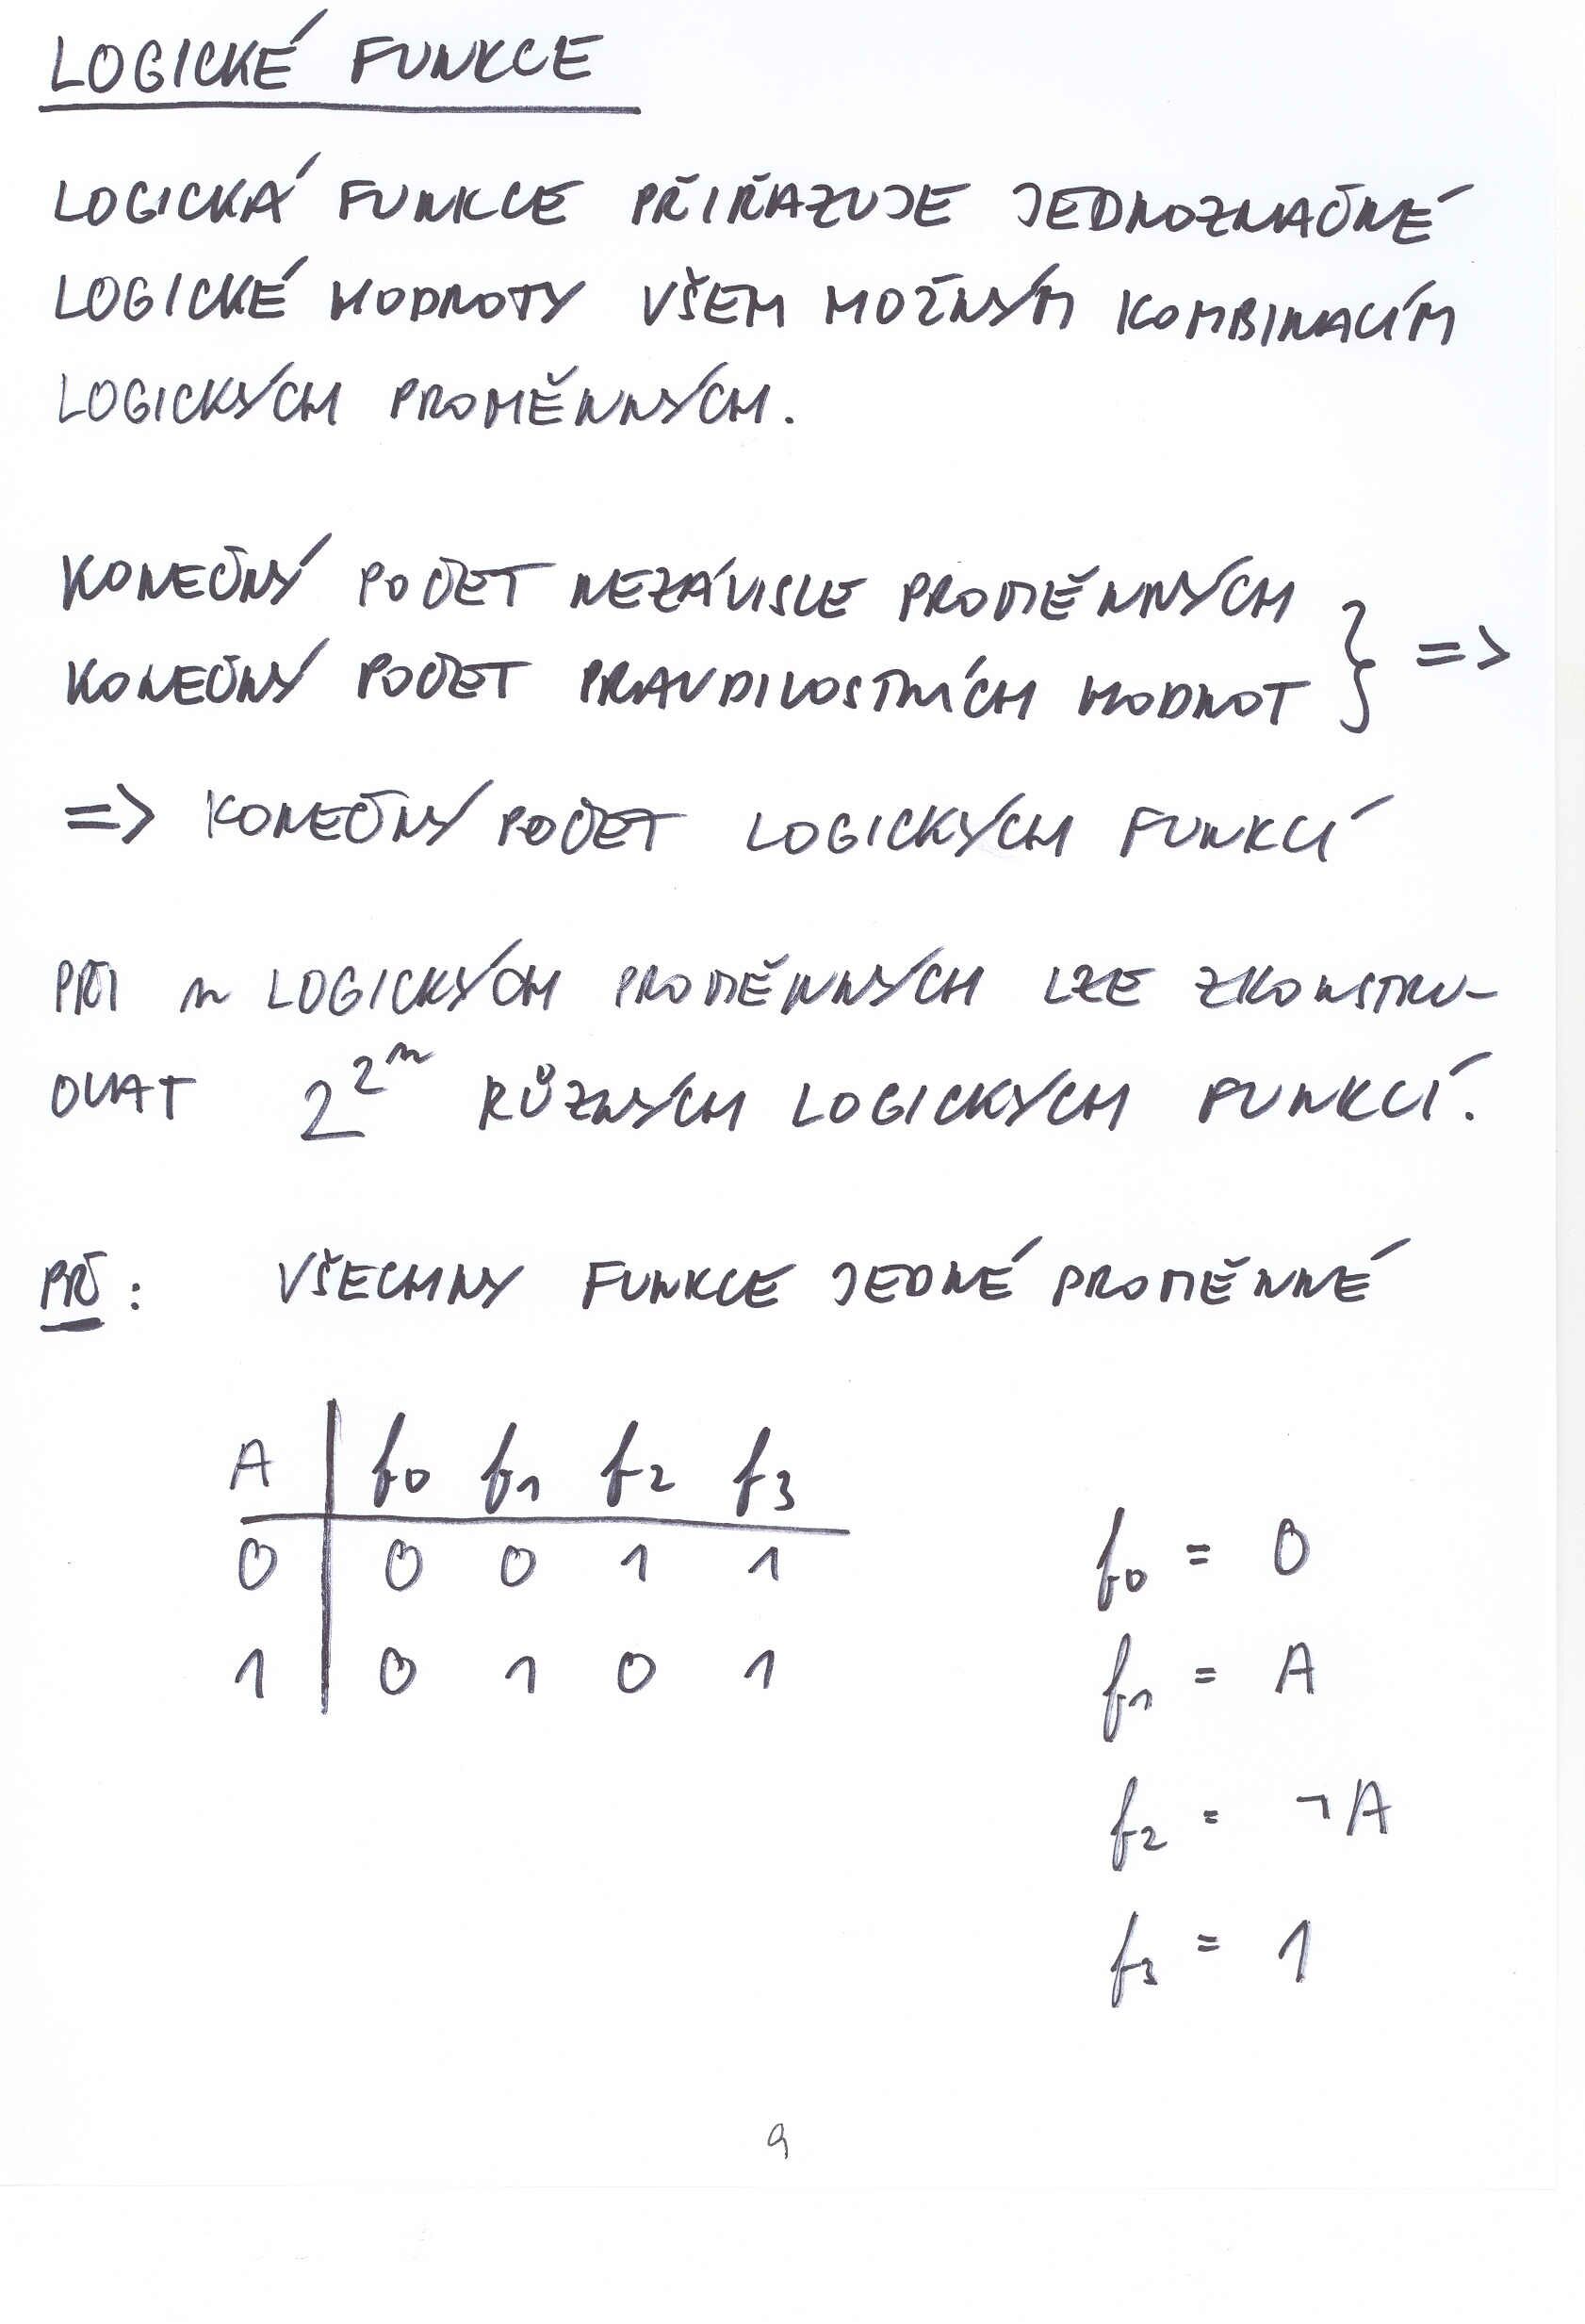 LOGICKÉ FUNKCE
LOGICKÁ FUNKCE PŘIŘAZUJE JEDNOZNAČNĚ
LOGICKÉ HODNOTY VŠEM MOŽNÝM KOMBINACÍM
LOGICKÝCH PROMĚNNÝCH.
KONEČNÝ POČET NEZÁVISLE PROMĚNNÝCH
KONEČNÝ POČET PRAVDIVOSTNÍCH HODNOT } =>
=> KONEČNÝ POČET LOGICKÝCH FUNKCÍ
PŘI n LOGICKÝCH PROMĚNNÝCH LZE ZKONSTRU-
OVAT 2^2^n RŮZNÝCH LOGICKÝCH FUNKCÍ.
PŘ: VŠECHNY FUNKCE JEDNÉ PROMĚNNÉ
A | f0 f1 f2 f3
0 | 0 0 1 1
1 | 0 1 0 1
f0 = 0
f1 = A
f2 = ¬A
f3 = 1
9